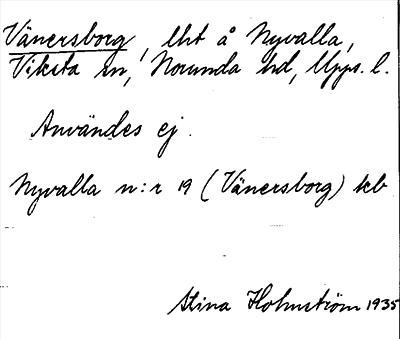 Vänersborg, lht å Nyvalla,
Viksta sn, Norunda hd, Upps. l.
Användes ej.
Nyvalla n:r 19 (Vänersborg) kb
Stina Holmström 1935